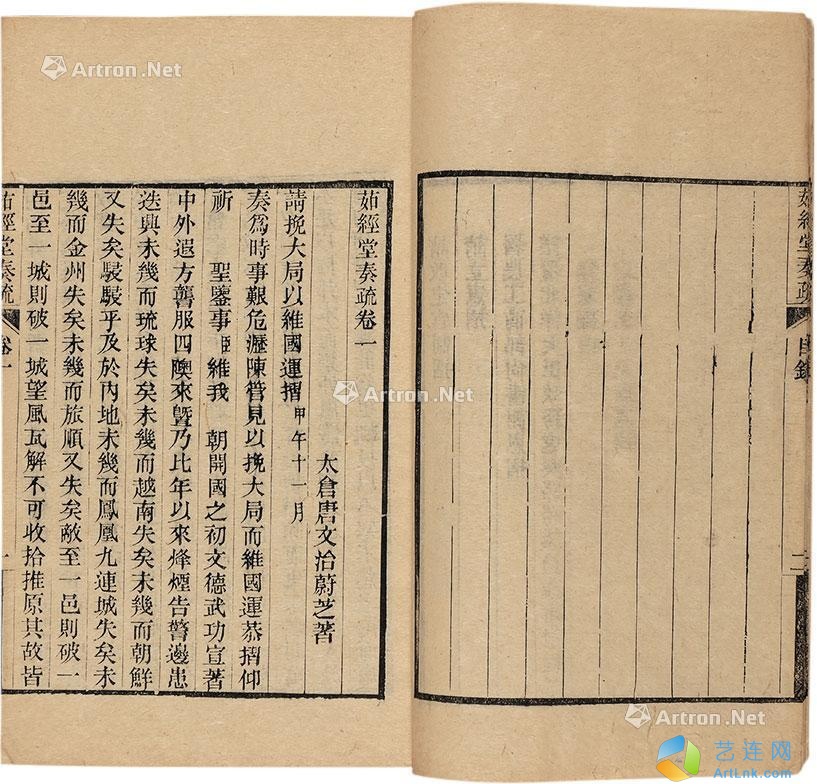 Artron.Net
Artron.Net
Artron.Net
Artron.Net
艺连网
ArtLnk.com
茹經堂奏疏
目錄
二
茹經堂奏疏卷一
太倉唐文治蔚芝著
請挽大局以維國運摺甲午十一月
奏爲時事艱危瀝陳管見以挽大局而維國運恭摺仰
祈 聖鑒事 維我 朝開國之初文德武功宣著
中外遐方讋服四隩來曁乃比年以來烽煙告警邊患
迭興未幾而琉球失矣未幾而越南失矣未幾而朝鮮
又失矣駸駸乎及於內地未幾而鳳凰九連城失矣未
幾而金州失矣未幾而旅順又失矣敵至一邑則破一
邑至一城則破一城望風瓦解不可收拾推原其故皆
茹經堂奏疏
卷一
一